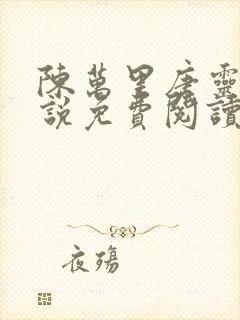 陳萬里唐靈
說免費閱讀
夜殤